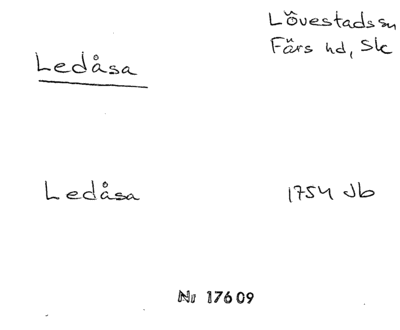 Lövestads sn
Färs hd, Sk
Ledåsa
Ledåsa 1754 Jb
Nr 17609